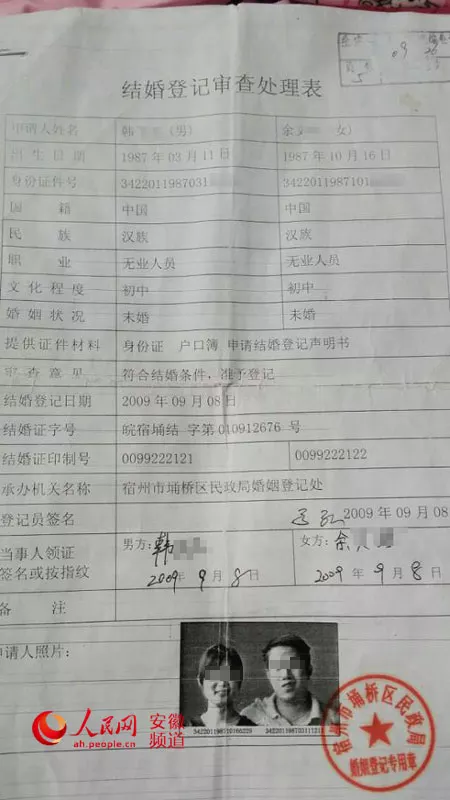 09
结婚登记审查处理表
申请人姓名 韩 (男) 余 女)
出生日期 1987年03月11日 1987年10月16日
身份证件号 3422011987031 3422011987101
国籍 中国 中国
民族 汉族 汉族
职业 无业人员 无业人员
文化程度 初中 初中
婚姻状况 未婚 未婚
提供证件材料 身份证 户口簿 申请结婚登记声明书
审查意见 符合结婚条件,准予登记
结婚登记日期 2009年09月08日
结婚证字号 皖宿埇结 字第010912676 号
结婚证印制号 0099222121 0099222122
承办机关名称 宿州市埇桥区民政局婚姻登记处
登记员签名 2009年09月08
当事人领证
签名或按指纹
男方:韩 2009年9月8日
女方:余 2009年9月8日
备注
申请人照片:
人民网 安徽频道
ah.people.cn
宿州市埇桥区民政局
婚姻登记专用章